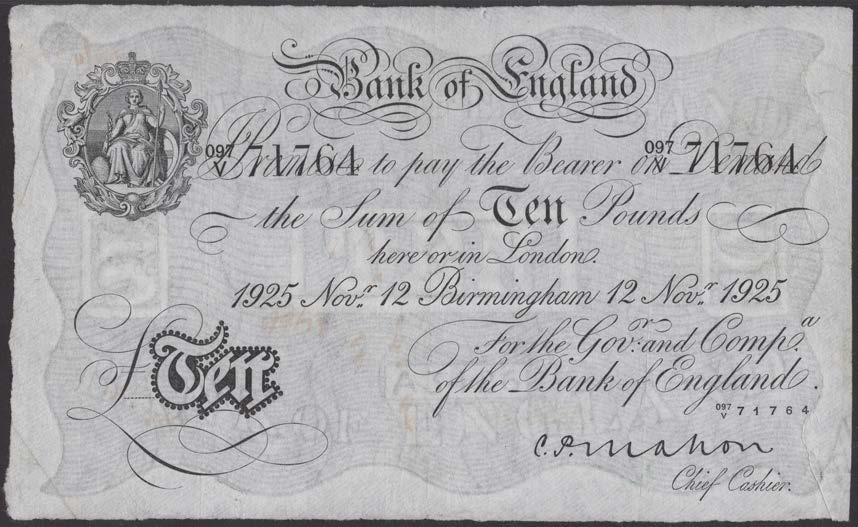 Bank of England
097/V 71764 097/V 71764
I Promise to pay the Bearer on Demand
the Sum of Ten Pounds
here or in London.
1925 Novr. 12 Birmingham 12 Novr. 1925
For the Govr. and Compa.
of the Bank of England.
£ Ten
097/V 71764
C. P. Mahon
Chief Cashier.